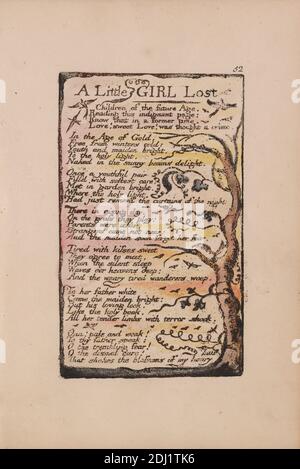 52
A Little GIRL Lost
Children of the future Age,
Reading this indignant page;
Know that in a former time,
Love! sweet Love! was thought a crime.
In the Age of Gold,
Free from winters cold:
Youth and maiden bright,
To the holy light,
Naked in the sunny beams delight.
Once a youthful pair
Fill'd with softest care:
Met in garden bright,
Where the holy light,
Had just removd the curtains of the night.
There in
On the grass they play:
Parents were afar:
Strangers came not near:
And the maiden soon forgot her fear.
Tired with kisses sweet
They agree to meet,
When the silent sleep
Waves o'er heavens deep:
And the weary tired wanderers weep.
To her father white
Came the maiden bright:
But his loving look,
Like the holy book,
All her tender limbs with terror shook.
Ona! pale and weak!
To thy father speak:
O the trembling fear!
O the dismal care!
That shakes the blossoms of my hoary hair
alamy
Image ID: 2DJ1TK6
www.alamy.com